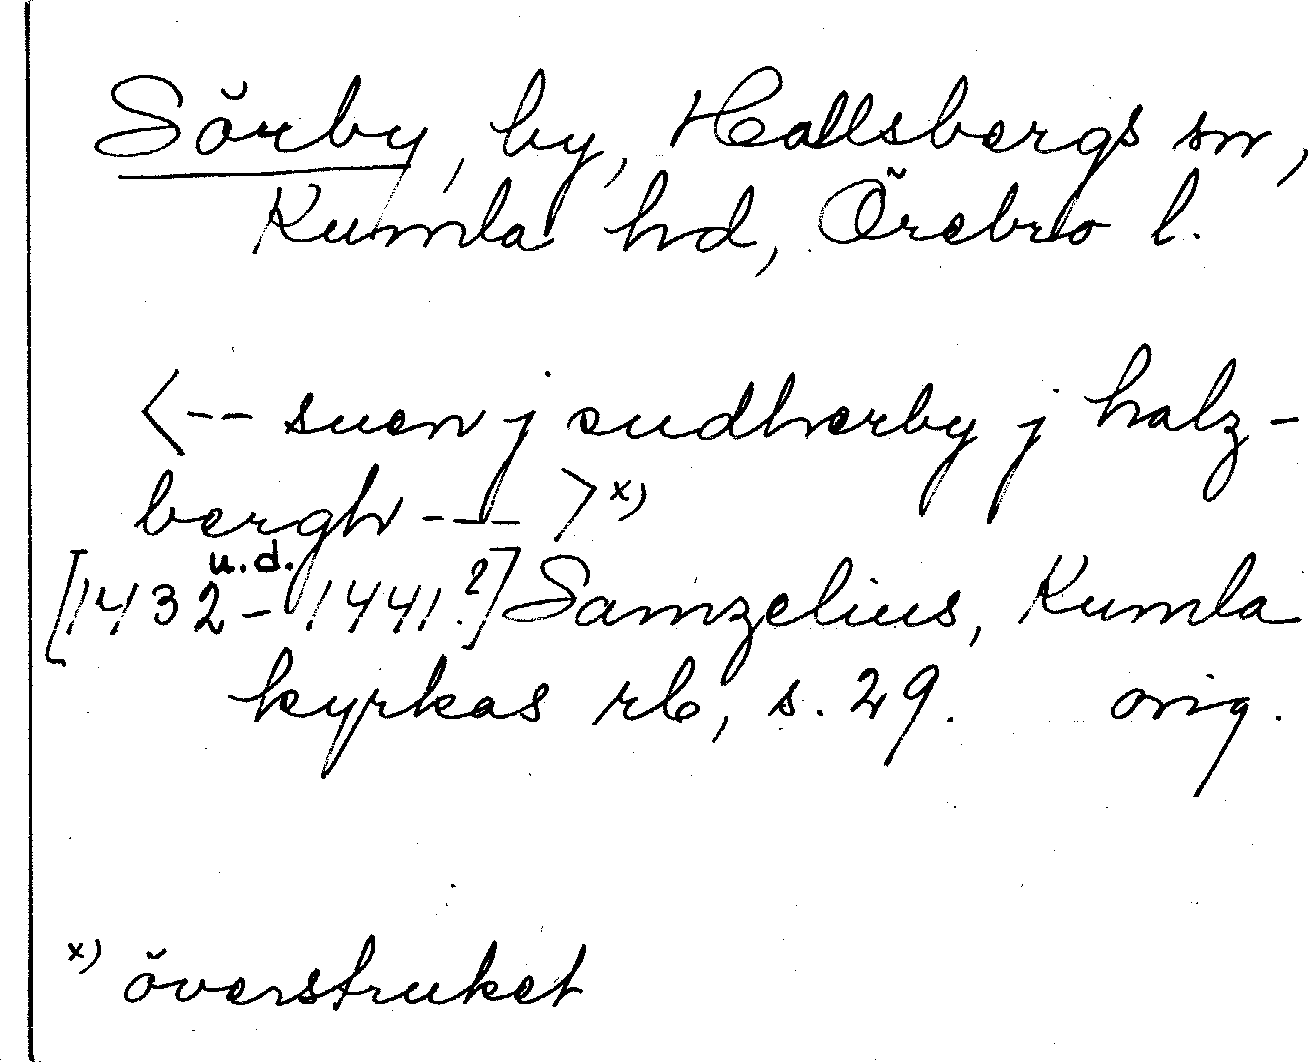 Sörby, by, Hallsbergs sn,
Kumla hd, Örebro l.
<-- suen j sudherby j halz-
bergh --- >x)
u.d.
[1432 - 1441?] Samzelius, Kumla
kyrkas rb, s. 29. orig.
x) överstruket